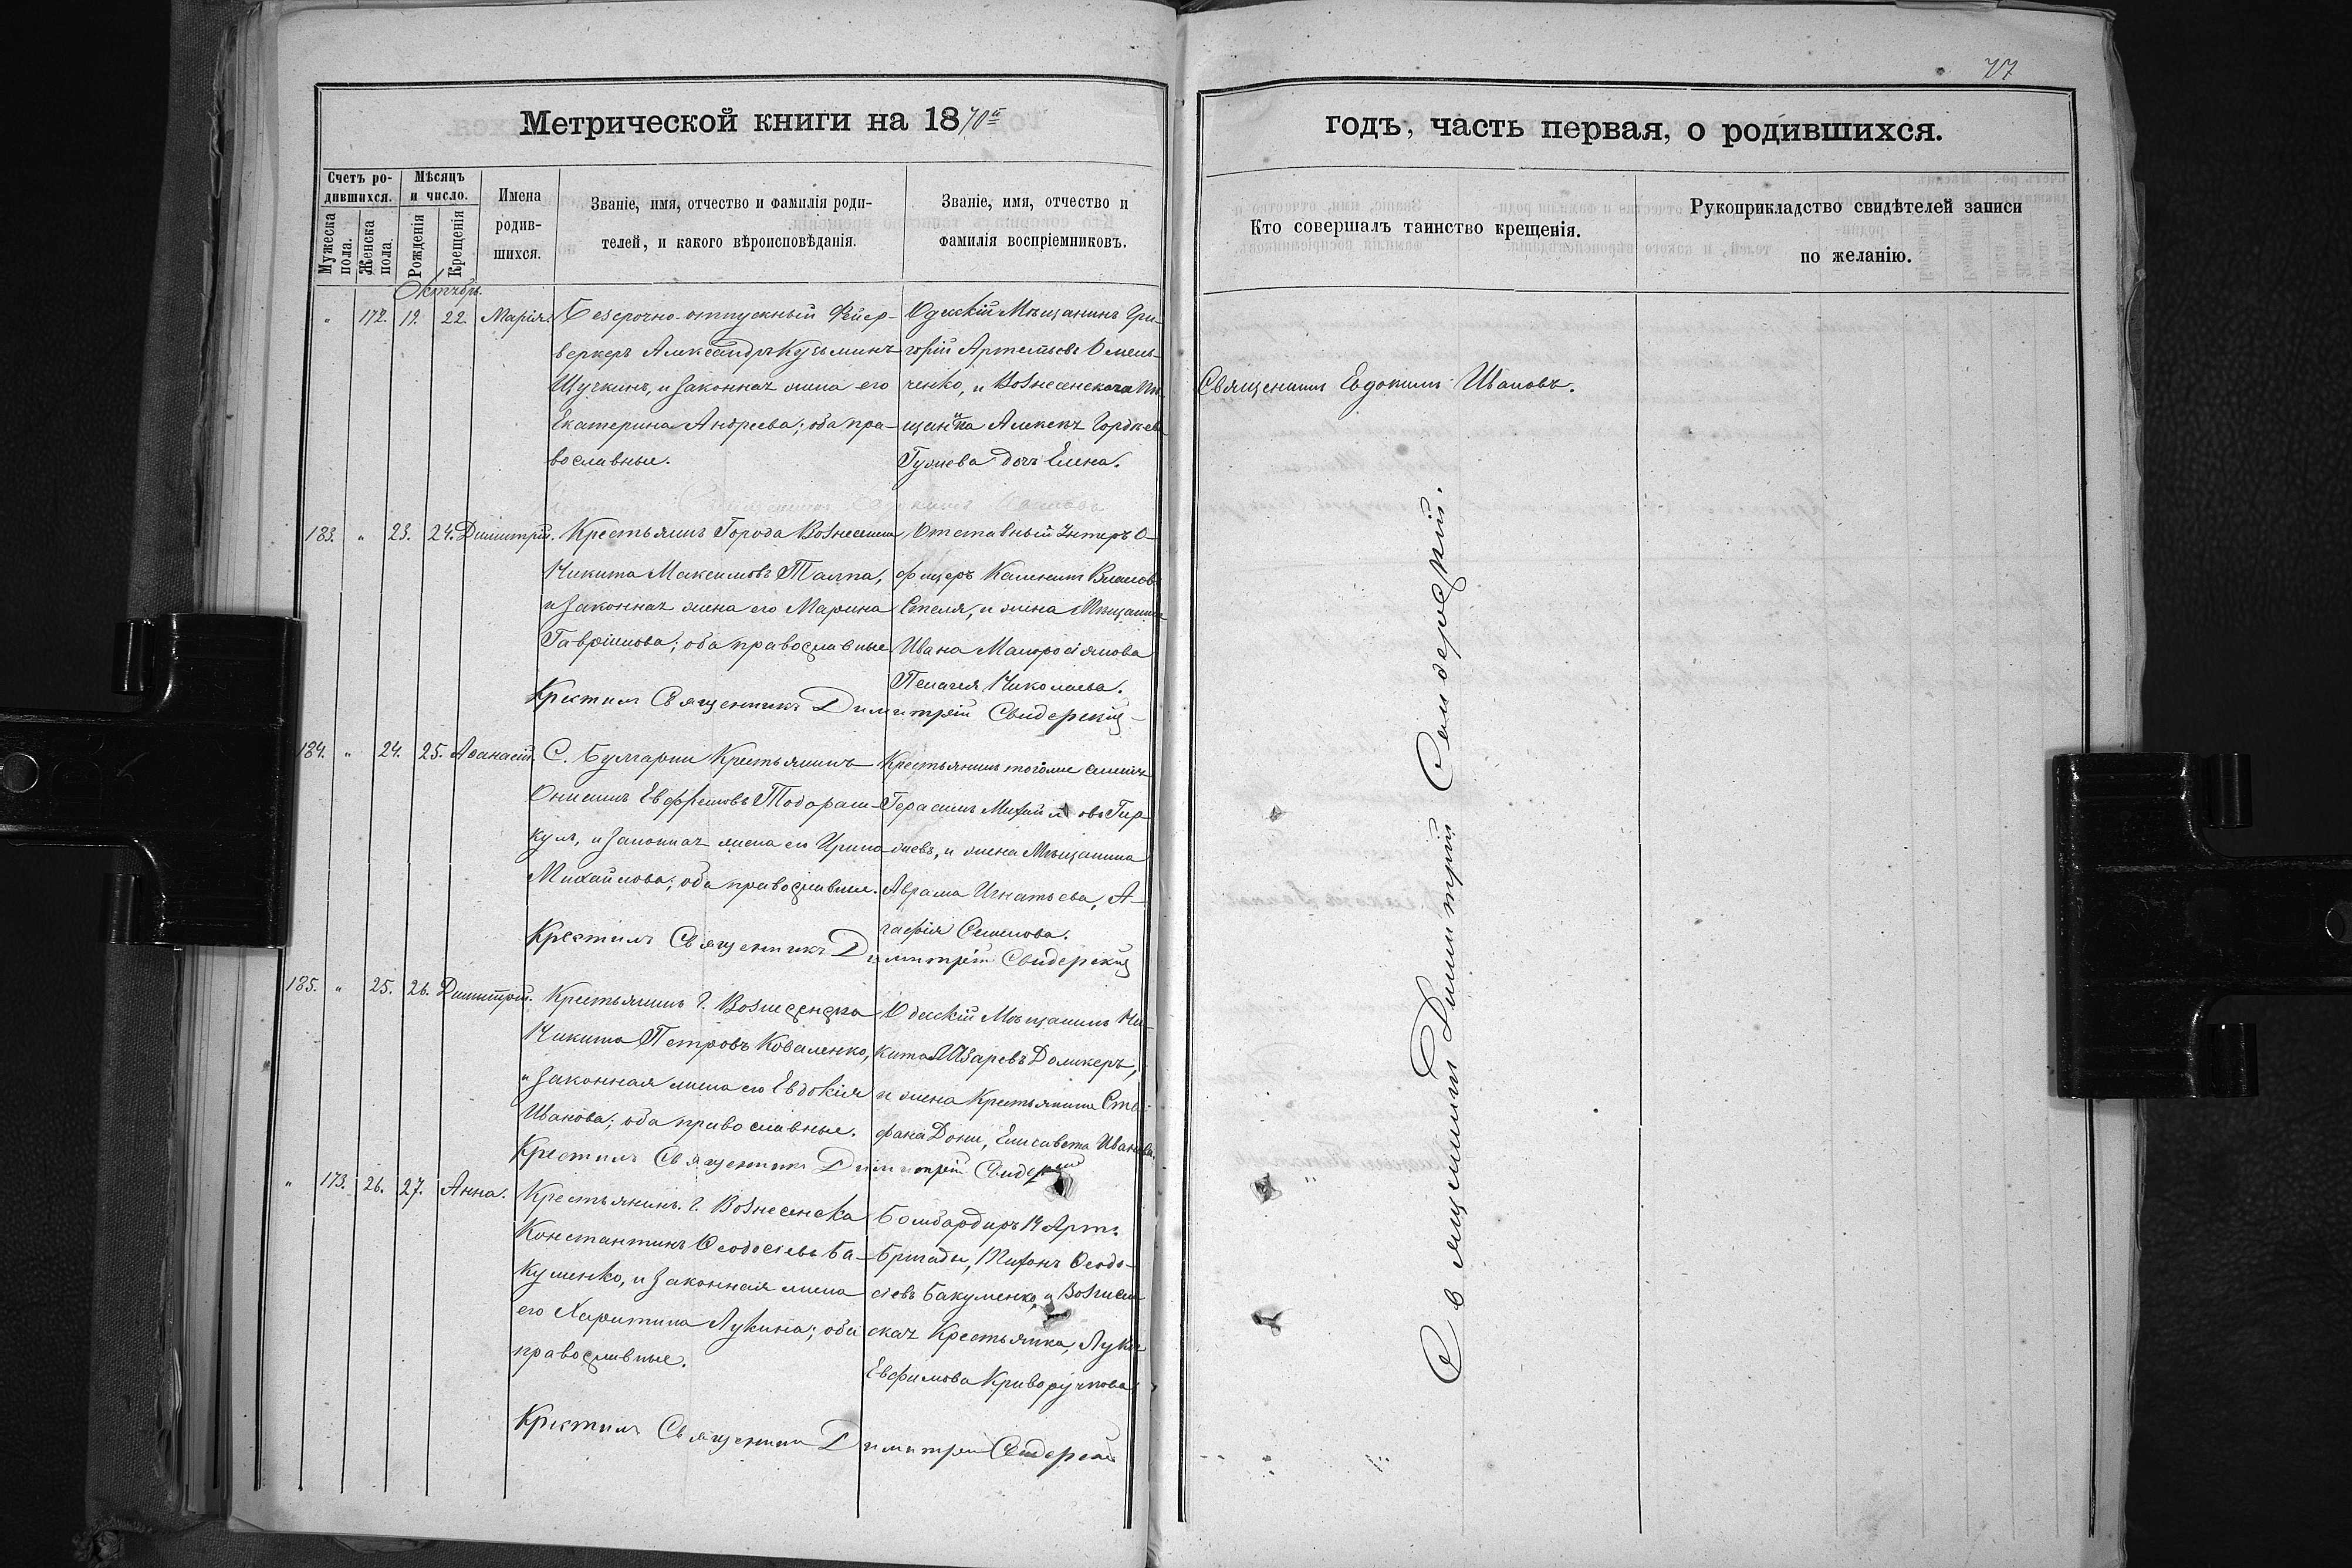 77
Метрической книги на 1870й
годъ, часть первая, о родившихся.
Счетъ ро-
дившихся.
Мужеска
пола.
Женска
пола.
Мѣсяцъ
и число.
Рожденія
Крещенія
Имена
родив-
шихся.
Званіе, имя, отчество и фамилія роди-
телей, и какого вѣроисповѣданія.
Званіе, имя, отчество и
фамилія воспріемниковъ.
Кто совершалъ таинство крещенія.
Рукоприкладство свидѣтелей записи
по желанію.
Октябрь.
" 172. 19. 22. Марія.
Безсрочно-отпускный Фейер-
веркеръ Александръ Кузьминъ
Щучкинъ, и законная жена его
Екатерина Андреева; оба пра-
вославные.
Одесскій Мѣщанинъ Гри-
горій Артемьевъ Омель-
ченко, и Вознесенскаго Мѣ
щанина Алексея Гордеева
дочь Елена.
Священникъ Евдокимъ Ивановъ.
183. " 23. 24. Димитрій.
Крестьянинъ Города Вознесенска
Никита Максимовъ Таппа,
и законная жена его Марина
Гавріилова; оба православные
Отставный Унтеръ О-
фицеръ
и жена Мѣщанина
Ивана Малоросіянова
Пелагея Николаева.
Крестилъ Священникъ Димитрій Свидерскій
184. " 24. 25. Аѳанасій.
С. Булгарки Крестьянинъ
Онисимъ Евфремовъ Тодораш-
кулъ, и законная жена его Ирина
Михайлова; оба православные.
Крестьянинъ тогоже
Герасимъ Михайловъ Гир
жевъ, и жена Мѣщанина
Аврама Игнатьева, А-
гафія Семенова.
Крестилъ Священникъ Димитрій Свидерскій
185. " 25. 26. Димитрій.
Крестьянинъ г. Вознесенска
Никита Петровъ Коваленко,
и законная жена его Евдокія
Иванова; оба православные.
Одесскій Мѣщанинъ Ни-
кита
и жена Крестьянина Сте
фана Дони, Елисавета Иванова.
Крестилъ Священникъ Димитрій Свидерскій
" 173. 26. 27. Анна.
Крестьянинъ г. Вознесенска
Константинъ Ѳеодосіевъ Ба-
куменко, и законная жена
его Харитина Лукина; оба
православные.
Бомбардиръ 14 Арт.
бригады, Тихонъ Ѳеодо-
сіевъ Бакуменко, и Вознесен
ская Крестьянка, Лукія
Евфимова Криворучкова
Крестилъ Священникъ Димитрій Свидерскій
Священникъ Димитрій Свидерскій.